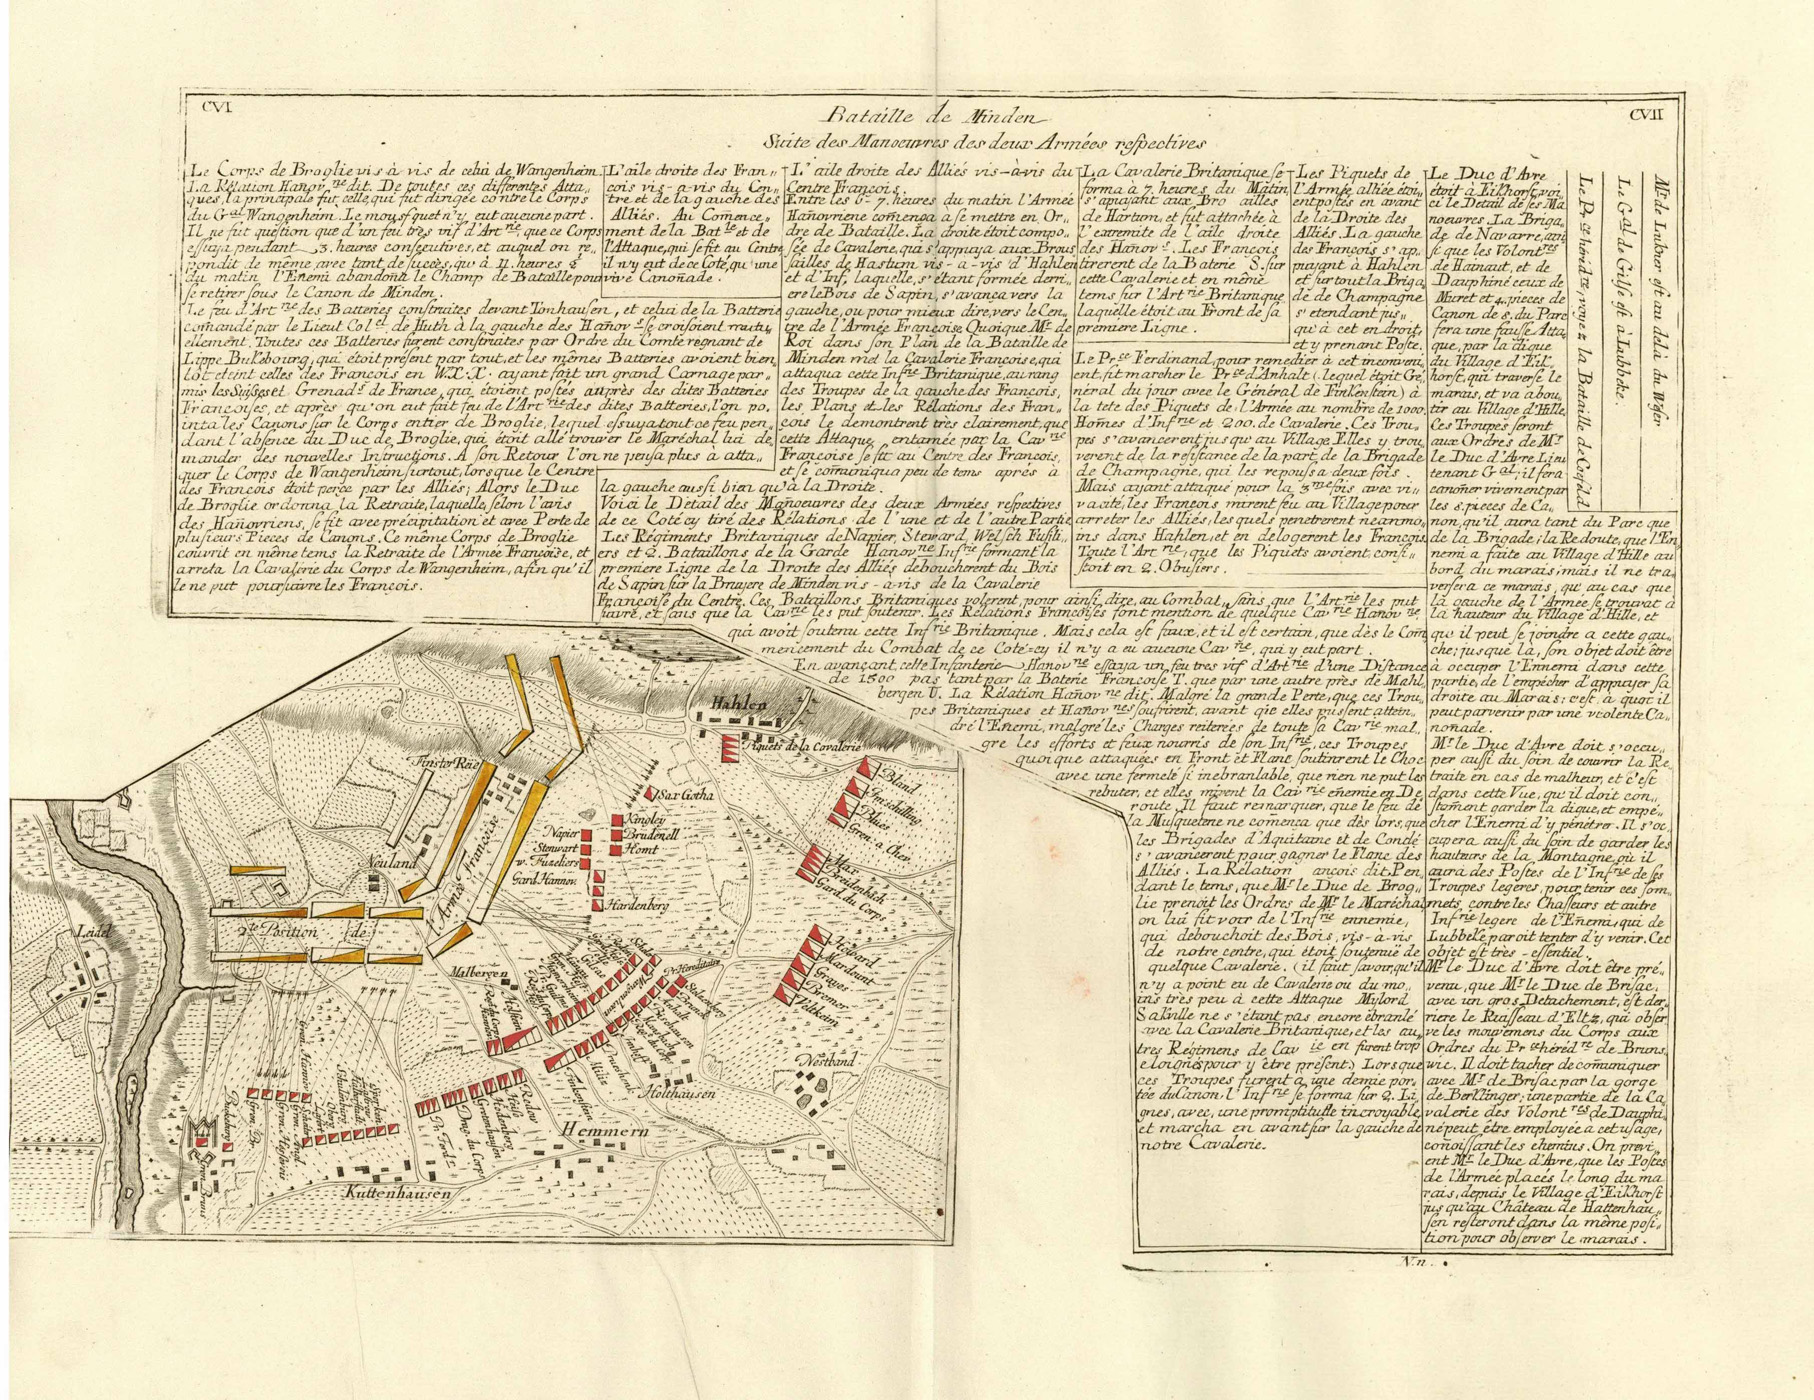 CVI
CVII
Bataille de Minden
Suite des Manoeuvres des deux Armées respectives
Le Corps de Broglie vis à vis de celui de Wangenheim.
La Rélation Hañov.ne dit. De toutes ces differentes Atta„
ques, la principale fut celle, qui fut dirigée contre le Corps
du G.al Wangenheim. Le mousquet n'y eut aucune part.
Il ne fut question que d'un feu très vif d'Art.rie que ce Corps
essuya pendant 3. heures consecutives, et auquel on re„
pondit de même avec tant de succès, qu'à 11. heures
du matin l'Enemi abandoña le Champ de Bataille pour
se retirer sous le Canon de Minden.
Le feu d'Art.rie des Batteries construites devant Tonhausen, et celui de la Batterie
comandée par le Lieut Col.el de Huth à la gauche des Hañov.s se croisoient mutu„
ellement. Toutes ces Batteries furent construites par Ordre du Comte regnant de
Lippe Bukebourg, qui étoit présent par tout, et les mêmes Batteries avoient bien„
tôt eteint celles des François en W.X.X. ayant fait un grand Carnage par„
mis les Suisses et Grenad.s de France, qui étoient postés auprès des dites Batteries
Françoises, et après qu'on eut fait feu de l'Art.rie des dites Batteries, l'on po„
inta les Canons sur le Corps entier de Broglie, lequel essuya tout ce feu pen„
dant l'absence du Duc de Broglie, qui étoit allé trouver le Maréchal lui de„
mander des nouvelles Instructions. A son Retour l'on ne pensa plus à atta„
quer le Corps de Wangenheim surtout, lorsque le Centre
des François étoit percé par les Alliés; Alors le Duc
de Broglie ordonna la Retraite, laquelle, selon l'avis
des Hañovriens, se fit avec précipitation et avec Perte de
plusieurs Pieces de Canons. Ce même Corps de Broglie
couvrit en même tems la Retraite de l'Armée Françoise, et
arreta la Cavalerie du Corps de Wangenheim, afin qu'il
le ne put poursuivre les François.
L'aile droite des Fran„
cois vis-a-vis du Cen„
tre et de la gauche des
Alliés. Au Comence„
ment de la Bat.le et de
l'Attaque, qui se fit au Centre
il n'y eut de ce Coté, qu'une
vive Canoñade.
L'aile droite des Alliés vis-à-vis du
Centre François.
Entre les 6-7. heures du matin l'Armée
Hañovriene comença à se mettre en Or„
dre de Bataille. La droite étoit compo„
sée de Cavalerie, qui s'appuya aux Brous
sailles de Hastum vis-a-vis d'Hahlen
et d'Inf, laquelle, s'étant formée derri„
ere le Bois de Sapin, s'avança vers la
gauche, ou pour mieux dire, vers le Cen„
tre de l'Armée Françoise Quoique M.r de
Roi dans son Plan de la Bataille de
Minden met la Cavalerie Françoise, qui
attaqua cette Inf.rie Britanique, au rang
des Troupes de la gauche des François,
les Plans et les Rélations des Fran„
çois le demontrent très clairement, que
cette Attaque entamée par la Cav.rie
Françoise se fit au Centre des François,
et se comuniqua peu de tems après à
la gauche aussi bien qu'à la Droite.
Voici le Détail des Mañoeuvres des deux Armées respectives
de ce Coté cy tiré des Rélations de l'une et de l'autre Partie
Les Régiments Britaniques de Napier, Steward, Welsch Fusili„
ers et 2. Bataillons de la Garde Hanov.ne Inf.rie formant la
premiere Ligne de la Droite des Alliés deboucherent du Bois
de Sapin sur la Bruyere de Minden vis-a-vis de la Cavalerie
Françoise du Centre. Ces Bataillons Britaniques volerent, pour ainsi dire, au Combat, sans que l'Art.rie les put
suivre, et sans que la Cav.rie les put soutenir. Les Rélations Françoises font mention de quelque Cav.rie Hanov.ne
qui avoit soutenu cette Inf.rie Britanique. Mais cela est faux, et il est certain, que dès le Com
mencement du Combat de ce Coté-cy il n'y a eu aucune Cav.rie, qui y eut part.
En avançant, cette Infanterie Hanov.ne essuya un feu tres vif d'Art.rie d'une Distance
de 1500 pas tant par la Baterie Françoise T. que par une autre près de Mahl„
bergen U. La Rélation Hañov.ne dit. Malgré la grande Perte, que ces Trou„
pes Britaniques et Hañov.nes soufrirent, avant que elles pussent attein„
dre l'Enemi, malgré les Charges reiterées de toute sa Cav.rie mal„
gre les efforts et feux nourris de son Inf.rie, ces Troupes
quoique attaquées en Front et Flanc soutinrent le Choc
avec une fermeté si inebranlable, que rien ne put les
rebuter, et elles mirent la Cav.rie enemie en De
route. Il faut remarquer, que le feu de
la Musqueterie ne comença que dès lors, que
les Brigades d'Aquitaine et de Condé
s'avancerent pour gagner le Flanc des
Alliés. La Rélation ancois dit. Pen
dant le tems, que M.r le Duc de Brog„
lie prenoit les Ordres de M.r le Maréchal
on lui fit voir de l'Inf.rie ennemie,
qui debouchoit des Bois, vis-à-vis
de notre centre, qui étoit soutenüe de
quelque Cavalerie. (il faut savoir, qu'il
n'y a point eu de Cavalerie ou du mo„
ins très peu à cette Attaque Mylord
Sakville ne s'étant pas encore ébranlé
avec la Cavalerie Britanique, et les au„
tres Régimens de Cav.ie en furent trop
eloignés pour y être présent) Lorsque
ces Troupes furent a une demie por„
tée du Canon, l'Inf.rie se forma sur 2. Li
gnes, avec, une promptitude incroyable
et marcha en avant sur la gauche de
notre Cavalerie.
La Cavalerie Britanique se
forma à 7. heures du Matin,
s'apuyant aux Bro ailles
de Hartum, et fut attachée à
l'extremite de l'aile droite
des Hañov.s. Les François
tirerent de la Baterie S. sur
cette Cavalerie et en même
tems sur l'Art.rie Britanique
laquelle étoit au Front de sa
premiere Ligne.
Les Piquets de
l'Armée alliée étoi„
ent postés en avant
de la Droite des
Alliés. La gauche
des François s'ap„
puyant à Hahlen
et surtout la Briga
de de Champagne
s'etendant jus„
qu'à cet endroit,
et y prenant Poste.
Le Pr.ce Ferdinand, pour remedier à cet inconveni„
ent, fit marcher le Pr.ce d'Anhalt (lequel étoit Gé„
néral du jour avec le Général de Finkenstein) à
la tête des Piquets de l'Armée au nombre de 1000.
Homes d'Inf.rie et 200. de Cavalerie. Ces Trou„
pes s'avancerent jusqu'au Village Elles y trou„
verent de la resistance de la part de la Brigade
de Champagne, qui les repoussa deux fois.
Mais ayant attaqué pour la 3.me fois avec vi„
vacité, les François mirent feu au Village pour
arreter les Alliés, lesquels penetrerent neanmo„
ins dans Hahlen, et en delogerent les François
Toute l'Art.rie, que les Piquets avoient, consi„
stoit en 2. Obusiers.
Le Duc d'Avre
étoit à Eilkhorst, voi„
ci le Detail de ses Ma
noeuvres. La Briga„
de de Navarre, ain„
si que les Volont.res
de Hainaut, et de
Dauphiné ceux de
Muret et 4. pieces de
Canon de 8. du Parc
fera une fausse Atta
que, par la digue
du Village d'Eik„
horst, qui traverse le
marais, et va abou„
tir au Village d'Hille
Ces Troupes seront
aux Ordres de M.r
le Duc d'Avre Lieu
tenant G.al; il fera
canoñer vivement par
les 8. pieces de Ca„
non, qu'il aura tant du Parc que
de la Brigade; la Redoute, que l'En
nemi a faite au Village d'Hille au
bord du marais; mais il ne tra„
versera ce marais, qu'au cas que
la gauche de l'Armée se trouvat à
la hauteur du Village d'Hille, et
qu'il peut se joindre a cette gau„
che; jusque là, son objet doit être
à occuper l'Ennemi dans cette
partie, de l'empécher d'appuyer sa
droite au Marais: c'est, à quoi il
peut parvenir par une violente Ca„
nonade.
M.r le Duc d'Avre doit s'occu„
per aussi du soin de couvrir la Re„
traite en cas de malheur, et c'est
dans cette Vue, qu'il doit con„
stament garder la digue, et empé„
cher l'Enemi d'y pénétrer. Il s'oc„
cupera aussi du soin de garder les
hauteurs de la Montagne, où il
aura des Postes de l'Inf.rie de ses
Troupes legères, pour tenir ces som„
mets, contre les Chasseurs et autre
Inf.rie legere de l'Eñemi, qui de
Lubbeke paroit tenter d'y venir. Cet
objet est très-essentiel.
M.r le Duc d'Avre doit être pré„
venu, que M.r le Duc de Brisac,
avec un gros Detachement, est der„
riere le Ruisseau d'Eltz, qui obser
ve les mouvemens du Corps aux
Ordres du Pr.ce héréd.re de Bruns„
wic. Il doit tacher de comuniquer
avec M.r de Brisac par la gorge
de Berklinger; une partie de la Ca„
valerie des Volont.res de Dauphi„
né peut être employée à cet usage,
conoissant les chemins. On previ„
ent M.r le Duc d'Avre, que les Postes
de l'Armée placés le long du ma„
rais, depuis le Village d'Eikhorst
jusqu'au Château de Hattenhau„
sen resteront dans la même posi„
tion pour observer le marais.
Le Pr.ce héréd.re, voyez la Bataille de Cosfeld
Le G.al de Gilse est à Lubbeke.
M.r de Lukner est au delà du Weser
Hahlen
Piquets de la Cavalerie
Finster Reie
Sax Gotha
Bland
Inschilling
Blues
Gren. a Chev
Kingley
Brudenell
Homt
Napier
Stewart
w. Fuzeliers
Gard Hannov.
Hardenberg
Max
Breidenbach
Gard du Corps
Howard
Mardount
Grayes
Bremer
Veltheim
Neuland
l'Armée Francoise
2.te Position de
Leidel
Malbergen
Pr Hereditaire
Stolzenberg
Holstein
Holthausen
Nestband
Hemmern
Kuttenhausen
N.n.